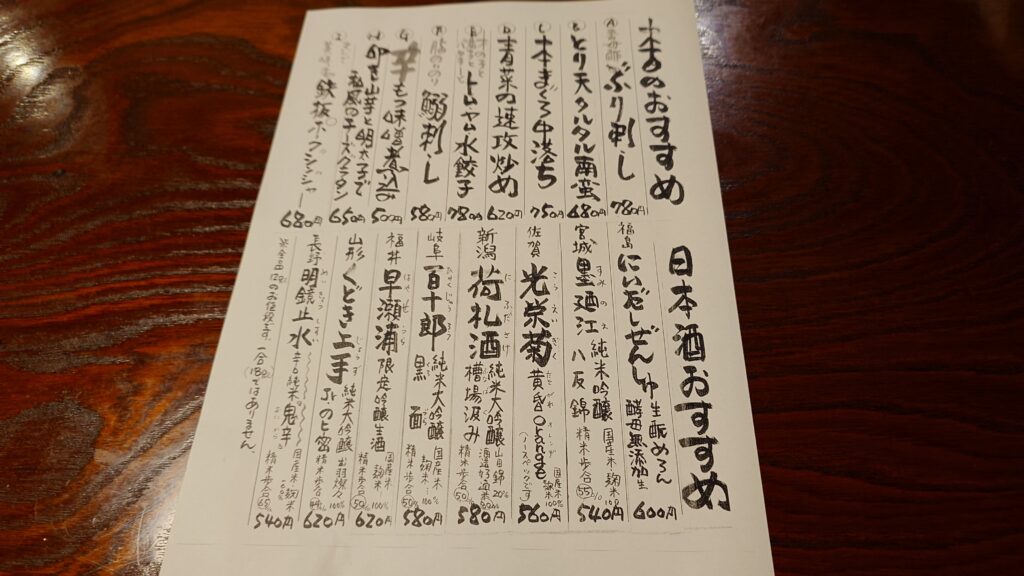 本日のおすすめ
A ぶり刺し 780円
B とり天タルタル南蛮 680円
C 本まぐろ中落ち 750円
D 青菜の速攻炒め 620円
E トムヤム水餃子 780円
F 鰯刺し 580円
G 辛もつ味噌煮込み 500円
H 叩き山芋と明太子で
和風のチーズグラタン 650円
I 鉄板 680円
日本酒おすすめ
福島 にいだしぜんしゅ 生酛めろん 酵母無添加生 600円
宮城 墨廼江 すみのえ 純米吟醸 八反錦 国産米 麹米 精米歩合55% 540円
佐賀 光栄菊 こうえいぎく 黄昏Orange たそがれ オレンジ (ノースペックです) 国産米 麹米 100% 560円
新潟 荷札酒 にふだざけ 純米大吟醸 槽場汲み 山田錦20% 精米歩合50% 580円
岐阜 百十郎 ひゃくじゅうろう 純米大吟醸 黒面 国産米 麹米 100% 精米歩合50% 580円
福井 早瀬浦 はやせうら 限定吟醸生酒 国産米 麹米 精米歩合50% 620円
山形 くどき上手 じょうず 純米大吟醸 Jrのヒ蜜 出羽燦々 100% 精米歩合 620円
長野 明鏡止水 めいきょうしすい 辛口純米 鬼辛 国産米 麹米 精米歩合 540円
一合(180cc)ではありません。